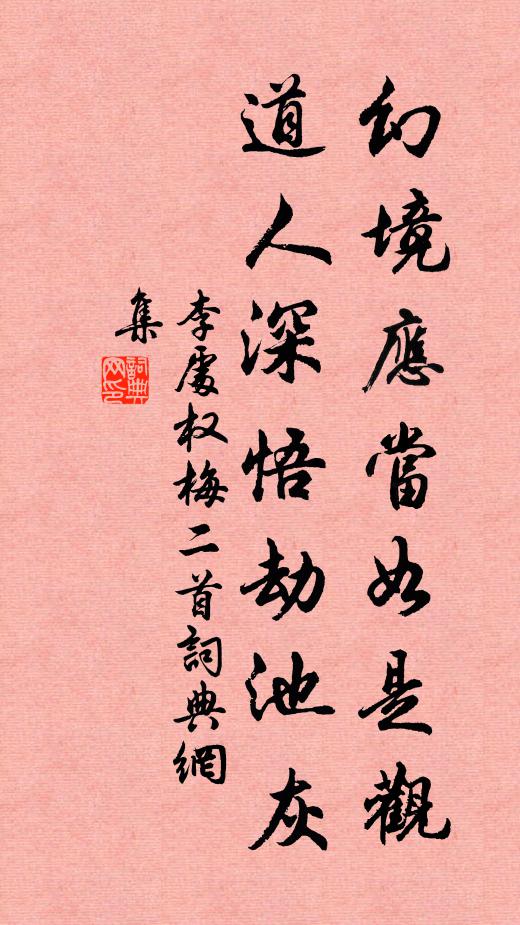 幻境應當如是觀
道人深悟劫池灰
李處权梅二首詞典網
集
詞典
网印